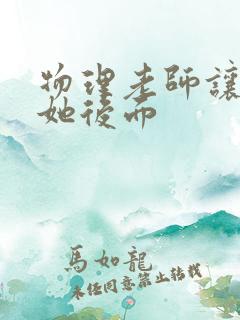 物理老師讓
她後而
馬如龍
未经同意禁止转载